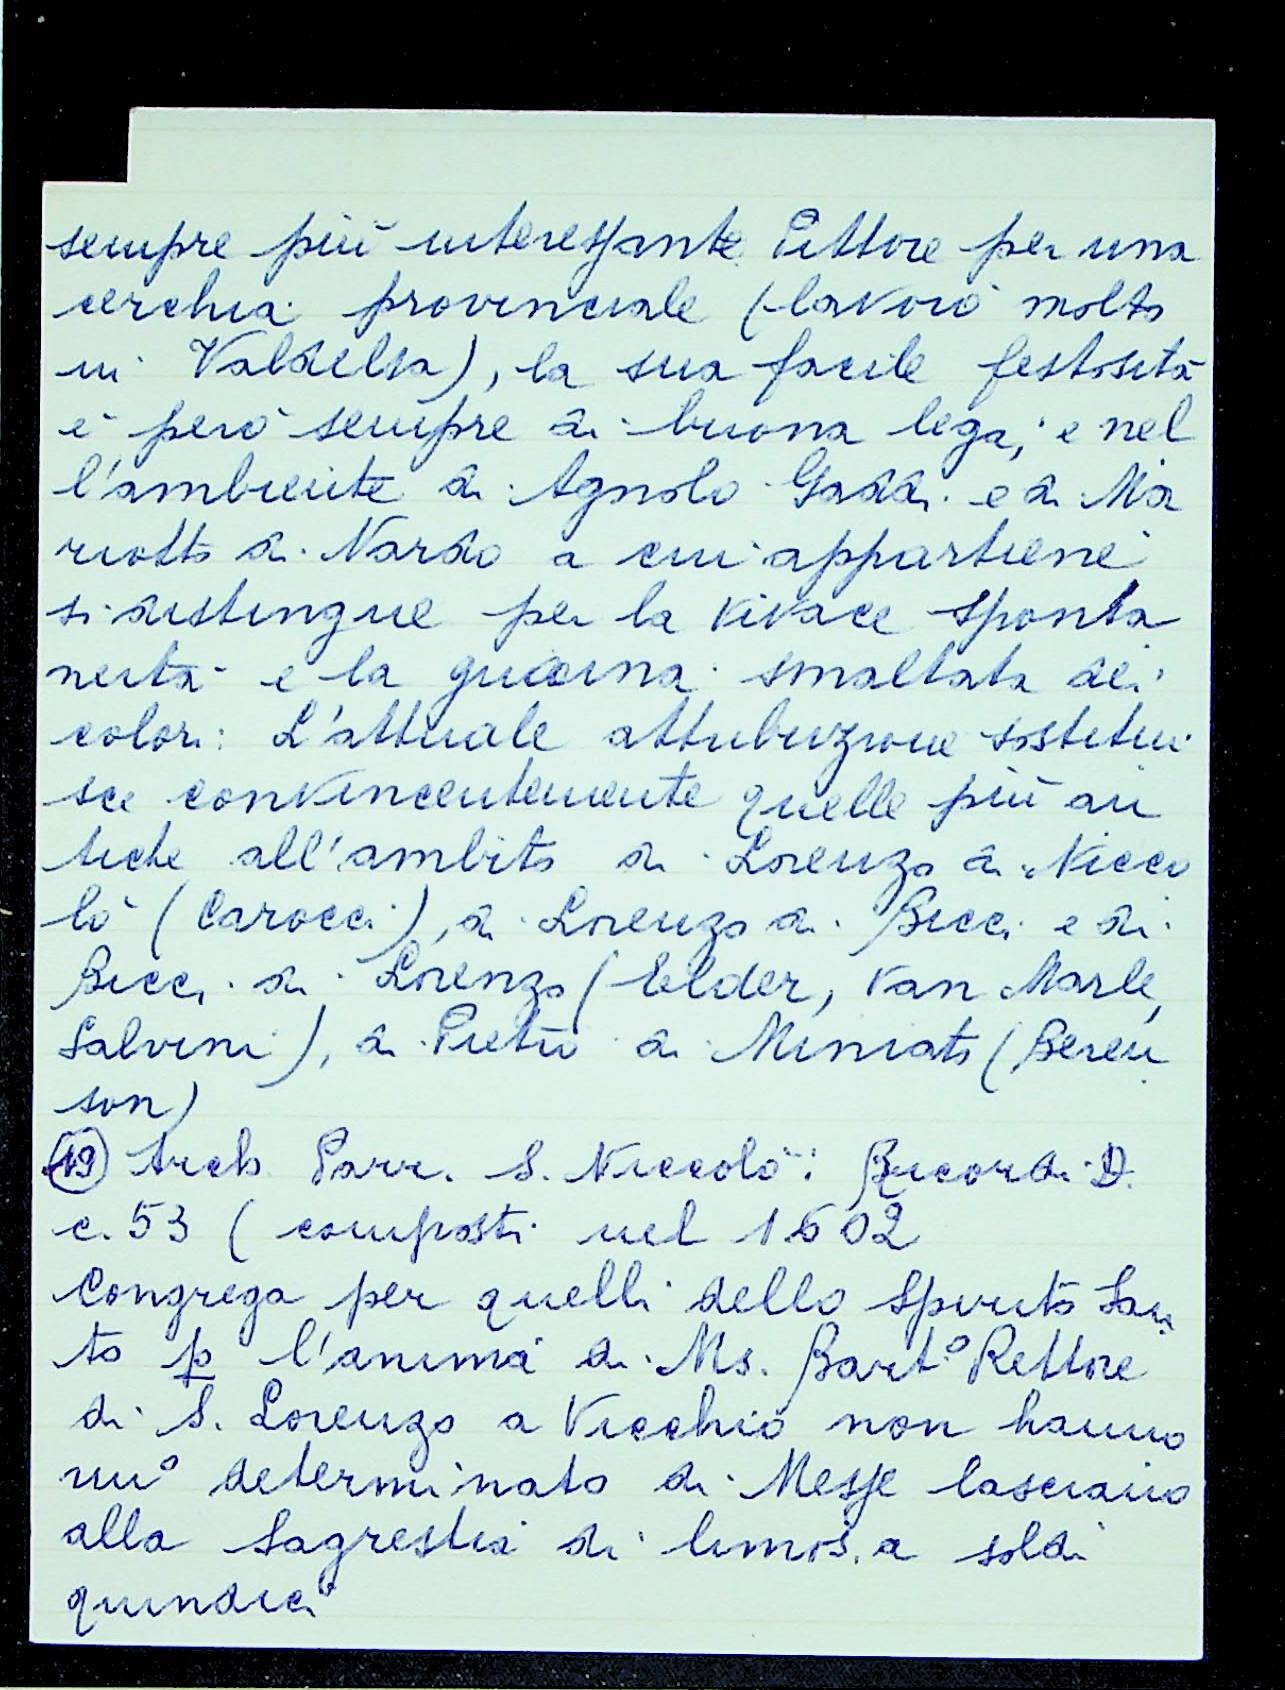 sempre più interessante. Pittore per una
cerchia provinciale (lavorò molto
in Valdelsa), la sua facile festosità
è però sempre di buona lega, e nel
l'ambiente di Agnolo Gaddi e di Ma
riotto di Nardo a cui appartiene
si distingue per la vivace sponta
neità e la gaiezza smaltata dei
colori: L'attuale attribuzione sostitui
sce convincentemente quelle più an
tiche all'ambito di Lorenzo di Nicco
lò (Carocci), di Lorenzo di Bicci e di
Bicci di Lorenzo (Elder, Van Marle,
Salvini), di Pietro di Miniato (Beren
son)
(19) Arch. Parr. S. Niccolò: Ricordi D.
c. 53 (composti nel 1602
Congrega per quelli dello Spirito San
to p l'anima di Ms. Bart.o Rettore
di S. Lorenzo a Vicchio non hanno
nu° determinato di Messe lasciano
alla Sagrestia di limos.a soldi
quindici